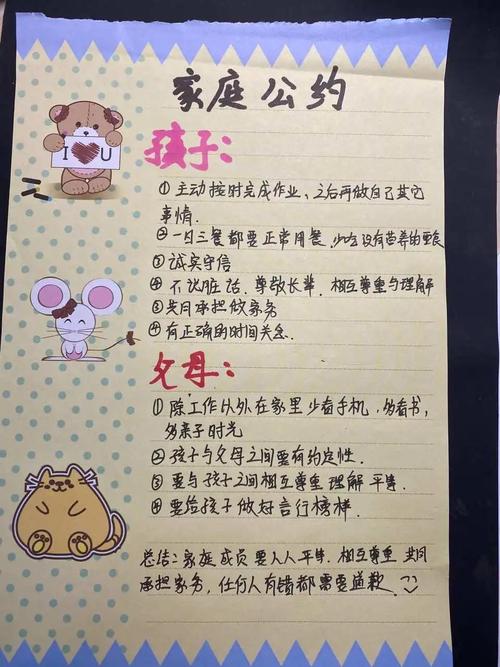 家庭公约
I U
孩子:
①主动按时完成作业,之后再做自己其它
事情.
②一日三餐都要正常用餐,少吃没有营养的零食
③诚实守信
④不说脏话.尊敬长辈.相互尊重与理解
⑤共同承担做家务
有正确的时间关念.
父母:
①除工作以外在家里少看手机,多看书,
多亲子时光
②孩子与父母之间要有约定性.
③要与孩子之间相互尊重 理解 平等.
④要给孩子做好言行榜样.
总结:家庭成员要人人平等.相互尊重 共同
承担家务,任何人有错都需要道歉.